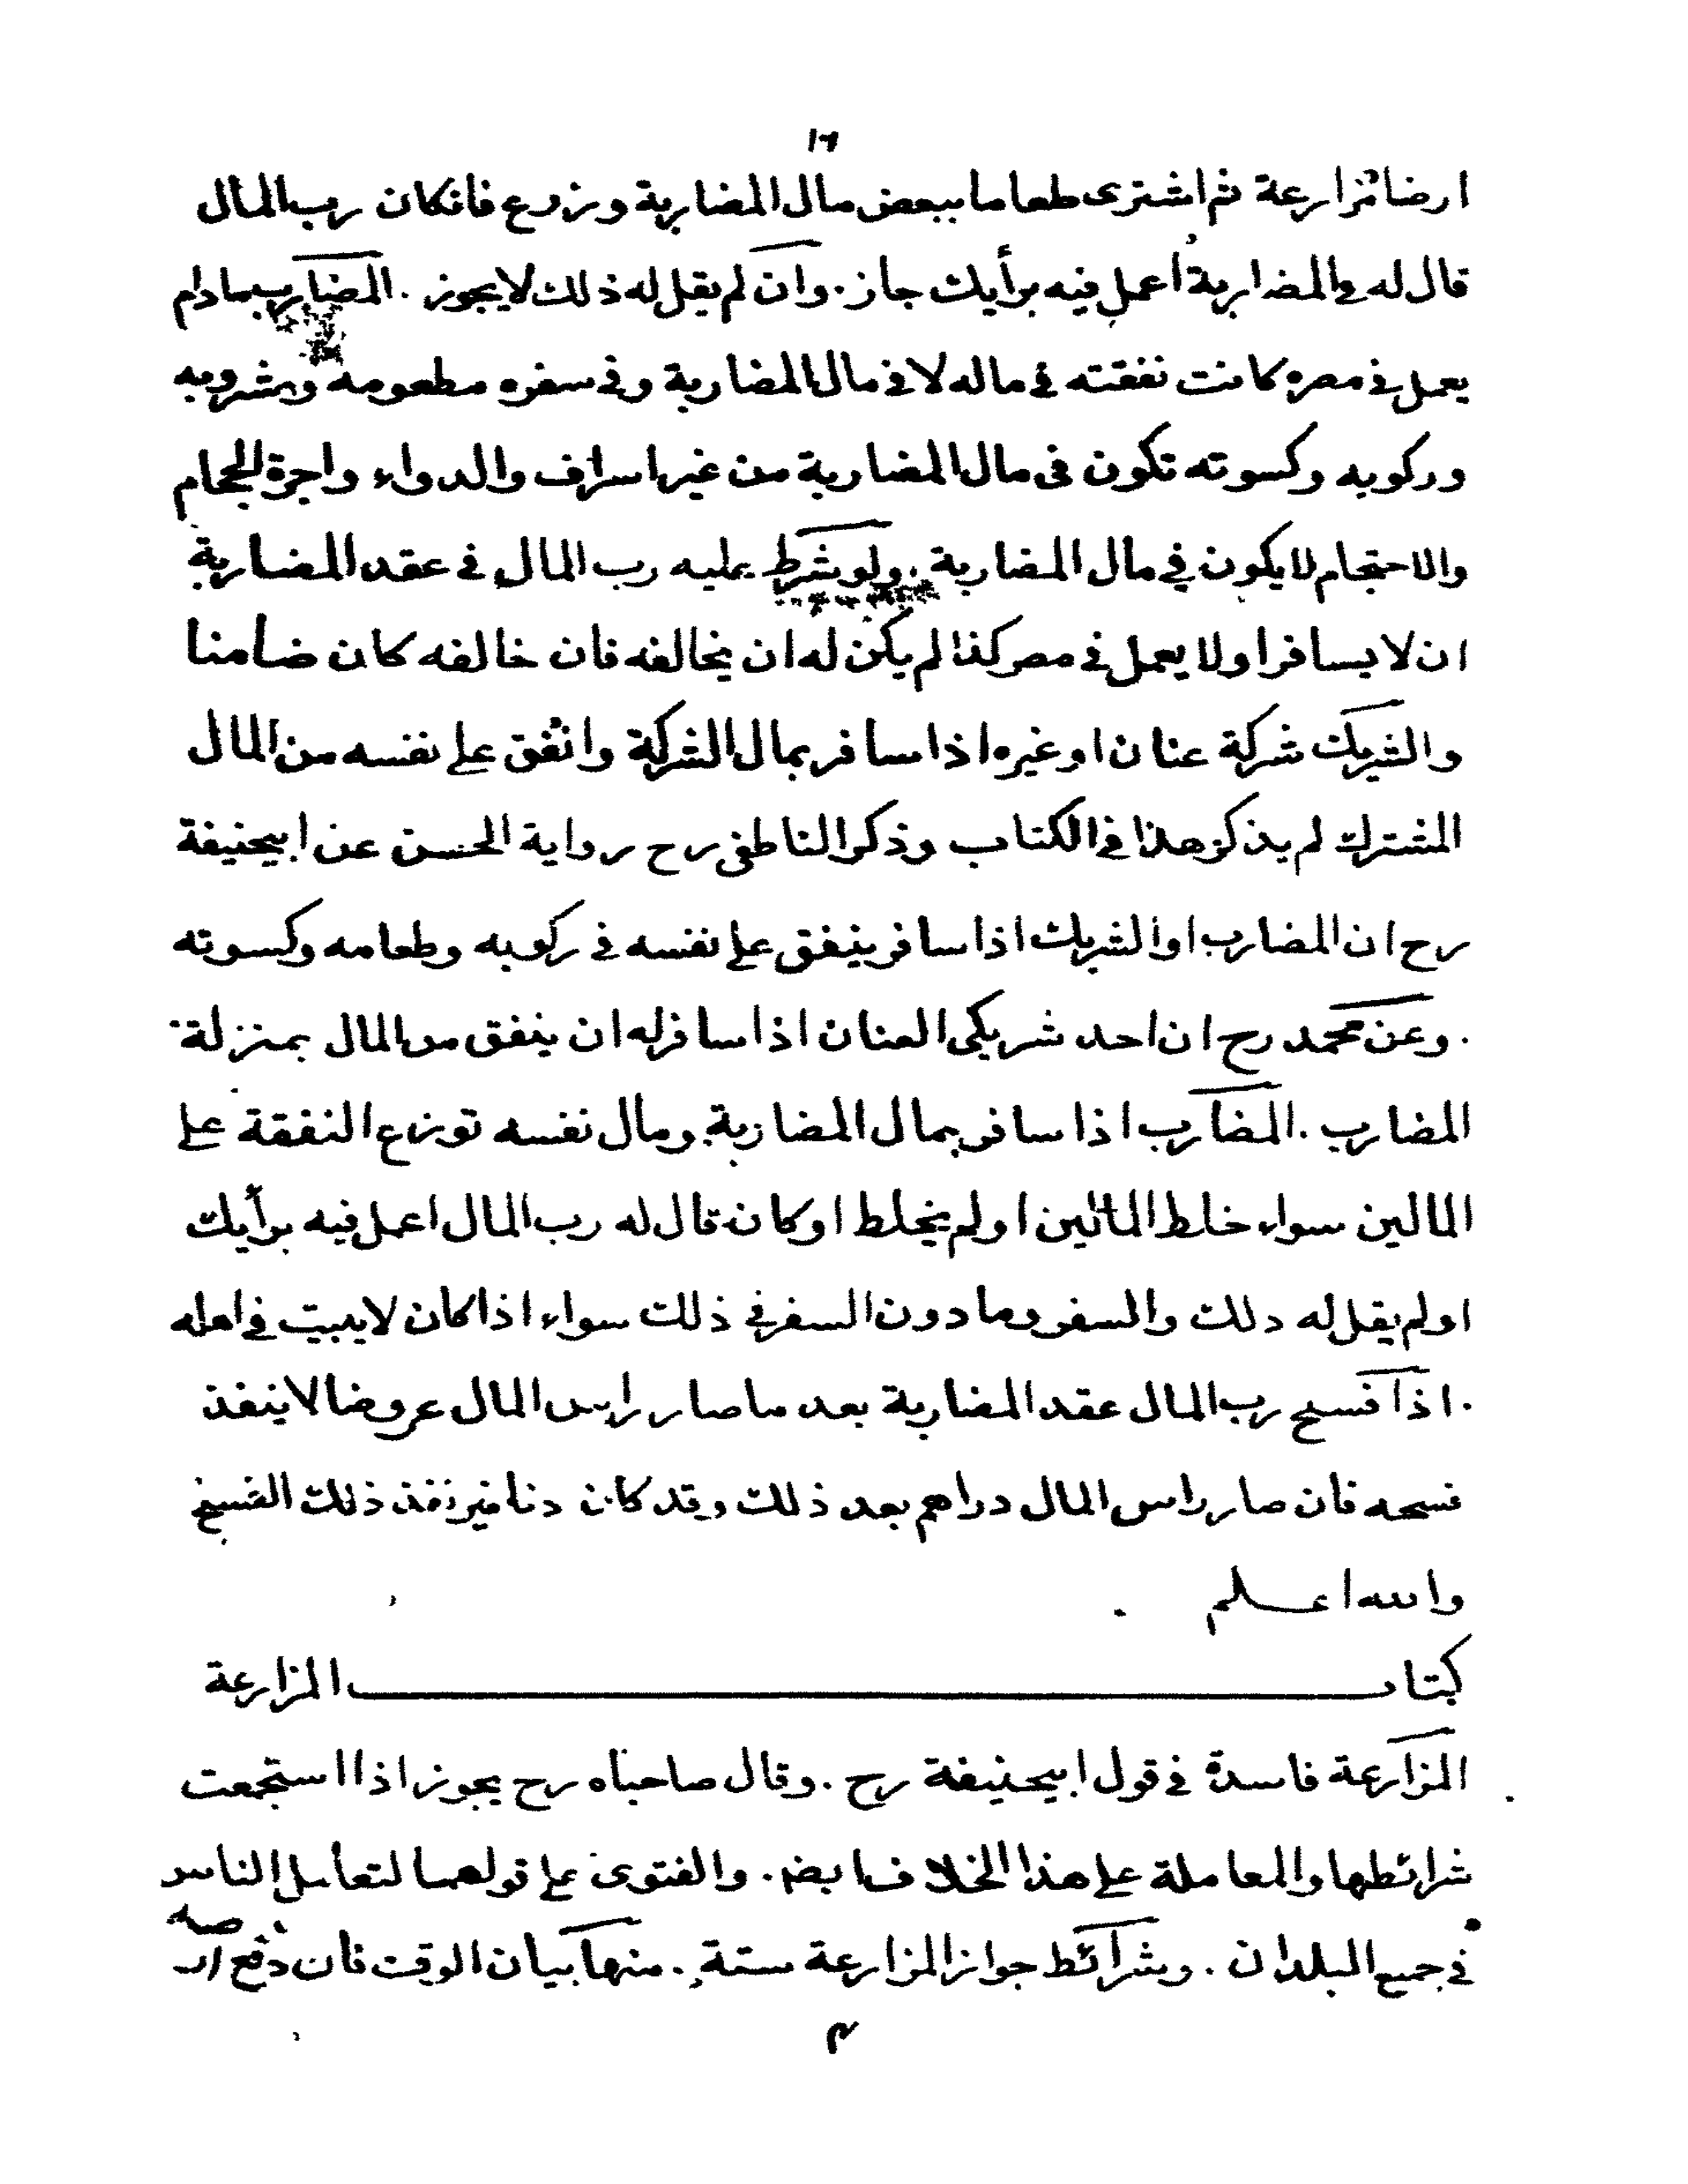 ١٦
ارضا مزارعة ثم اشترى طعاما ببعض مال المضاربة وزرع فانكان رب المال
قال له في المضاربة اعمل فيه برأيك جاز . وان لم يقل له ذلك لا يجوز . المضارب مادام
يعمل في مصره كانت نفقته في ماله لا في مال المضاربة وفي سفره مطعومه ومشروبه
وركوبه وكسوته تكون في مال المضاربة من غير اسراف والدواء واجرة الحجام
والاحتجام لا يكون في مال المضاربة . ولو شرط عليه رب المال في عقد المضاربة
ان لا يسافر اولا يعمل في مصر كذا لم يكن له ان يخالفه فان خالفه كان ضامنا
والشريك شركة عنان او غيره اذا سافر بمال الشركة وانفق على نفسه من المال
المشترك لم يذكر هذا في الكتاب وذكر الناطفى رح رواية الحسن عن ابيحنيفة
رح ان المضارب او الشريك اذا سافر ينفق على نفسه في ركوبه وطعامه وكسوته
. وعن محمد رح ان احد شريكى العنان اذا سافر له ان ينفق من المال بمنزلة
المضارب . المضارب اذا سافر بمال المضاربة ومال نفسه توزع النفقة على
المالين سواء خلط المالين اولم يخلط او كان قال له رب المال اعمل فيه برأيك
اولم يقل له دلك والسفر وما دون السفر في ذلك سواء اذا كان لا يبيت في اهله
. اذا فسخ رب المال عقد المضاربة بعد ما صار راس المال عروضا لا ينفذ
فسخه فان صار راس المال دراهم بعد ذلك وقد كان دنانير نفذ ذلك الفسخ
والله اعلم
كتاب المزارعة
المزارعة فاسدة في قول ابيحنيفة رح . وقال صاحباه رح يجوز اذا استجمعت
شرائطها والمعاملة على هذا الخلاف ايضا . والفتوى على قولهما لتعامل الناس
في جميع البلدان . وشرائط جواز المزارعة ستة . منها بيان الوقت فان دفع ارضه